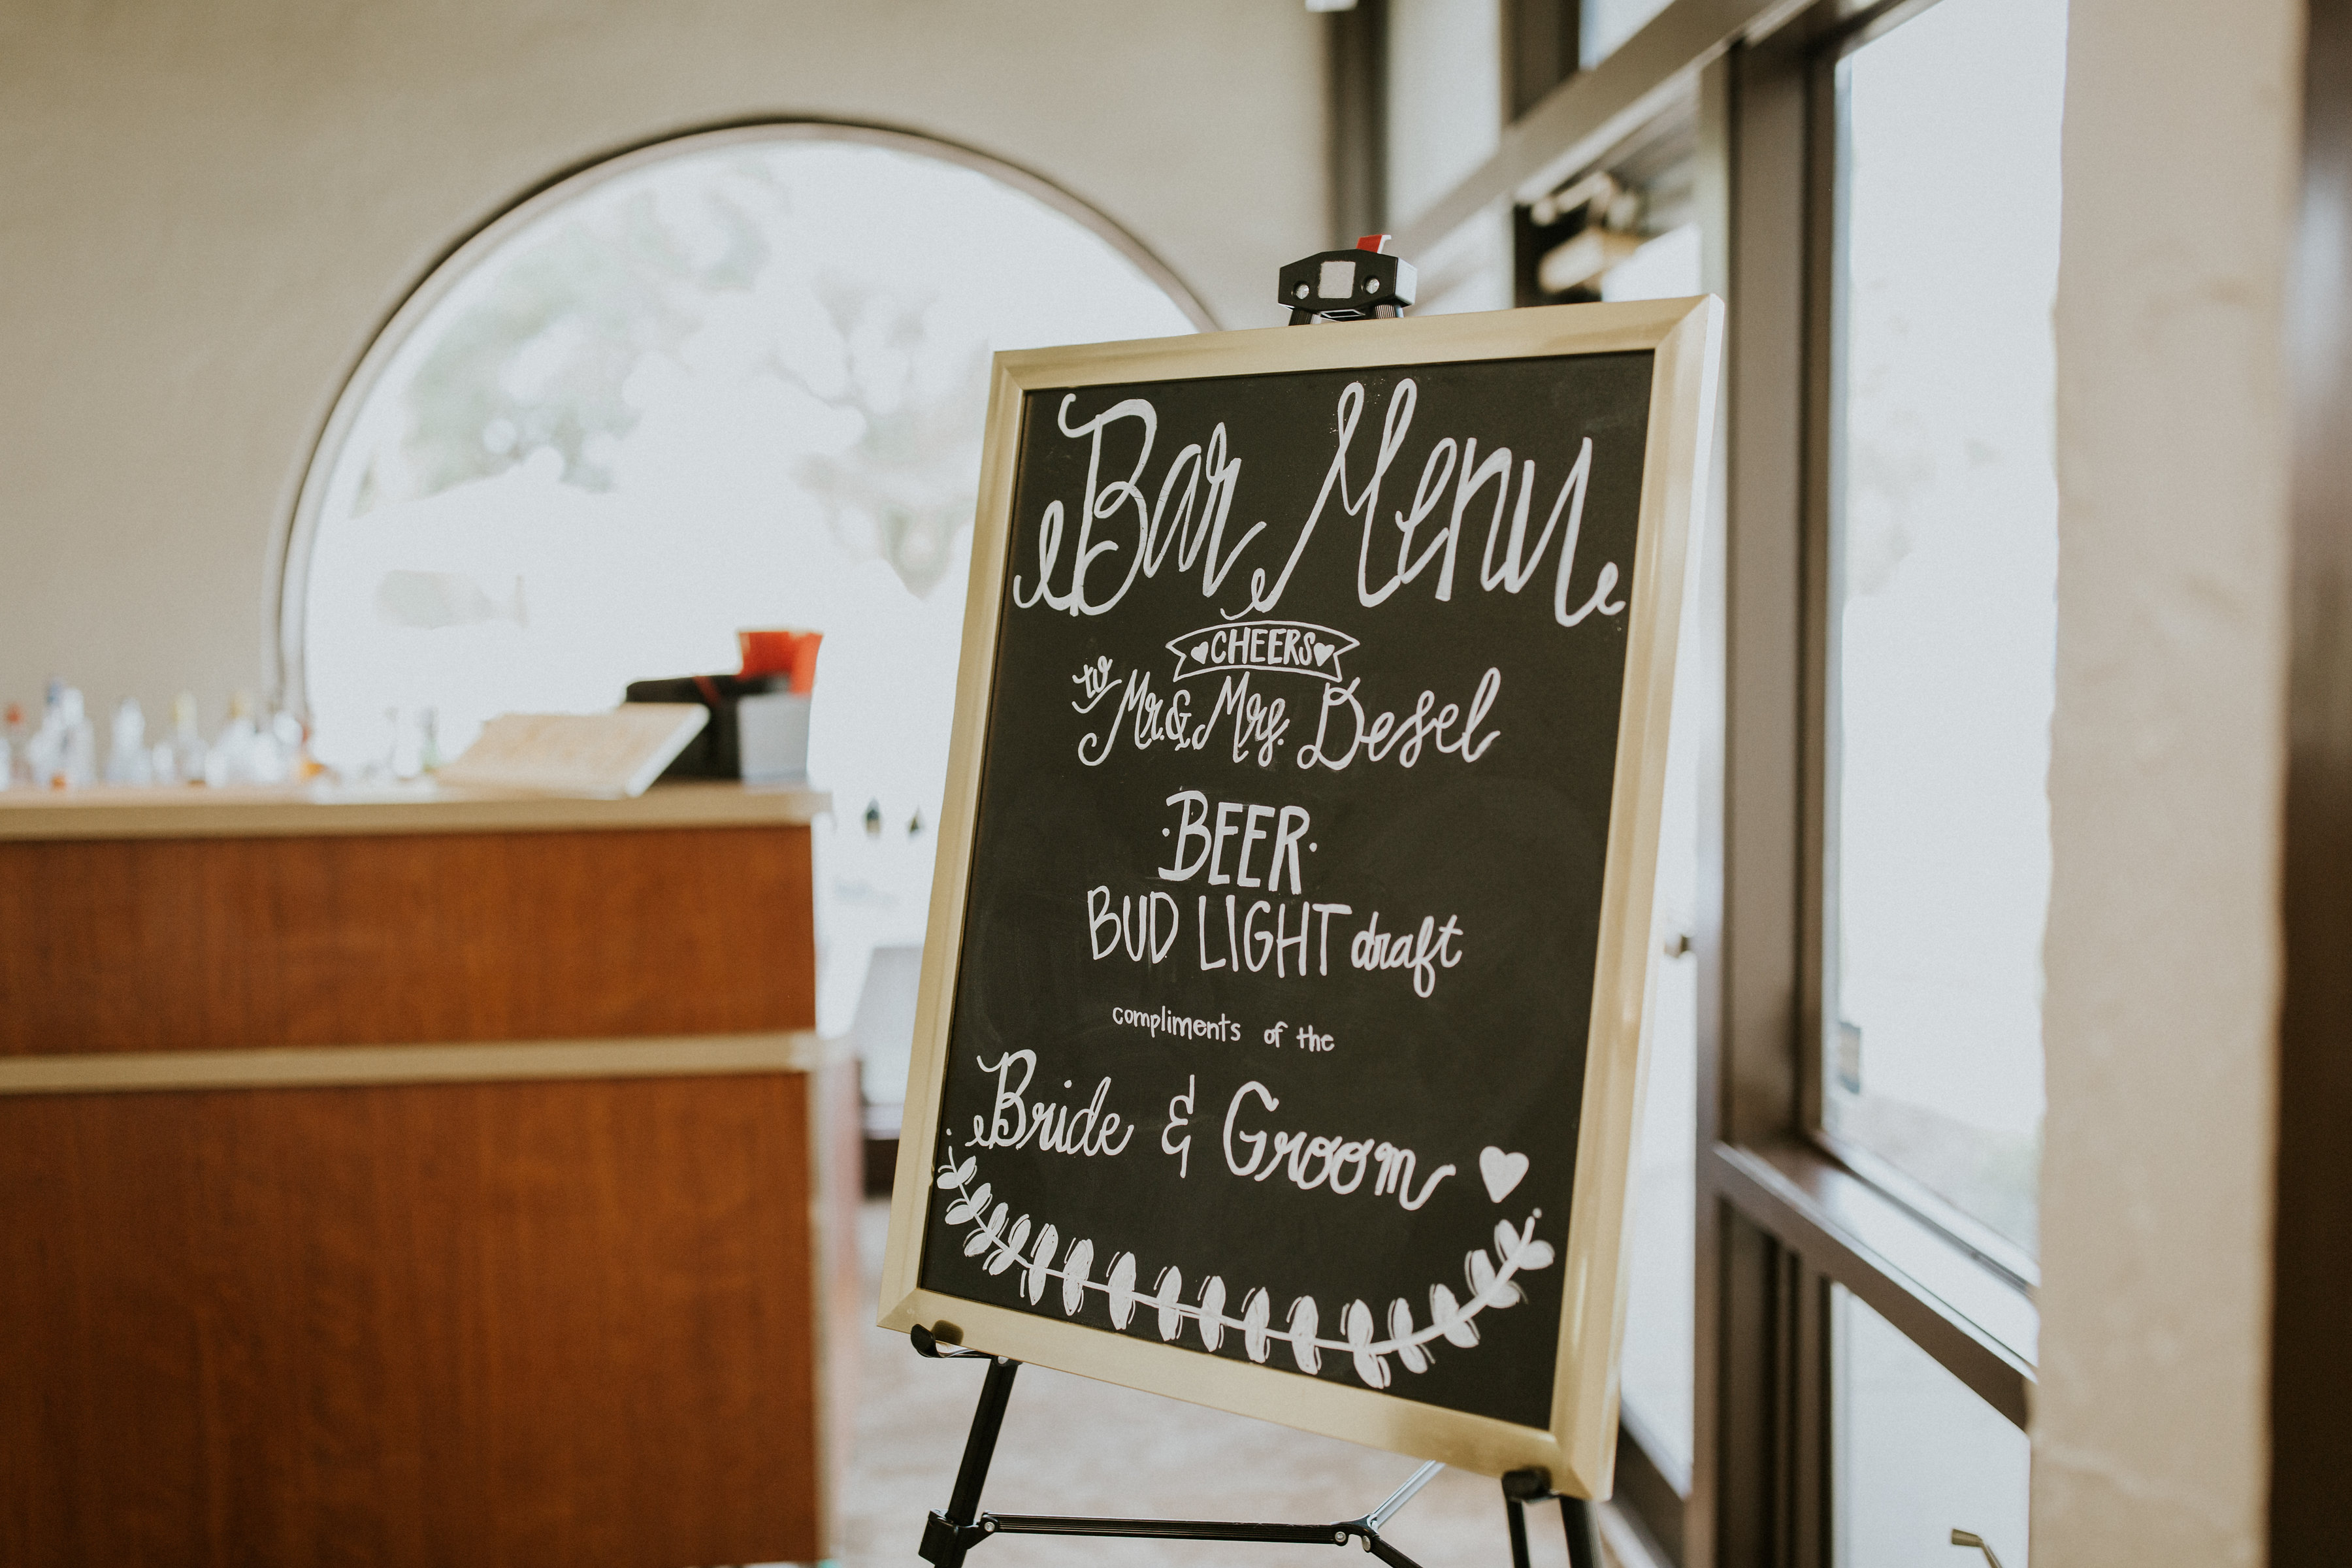 Bar Menu
CHEERS
to Mr. & Mrs. Desel
·BEER·
BUD LIGHT draft
compliments of the
Bride & Groom